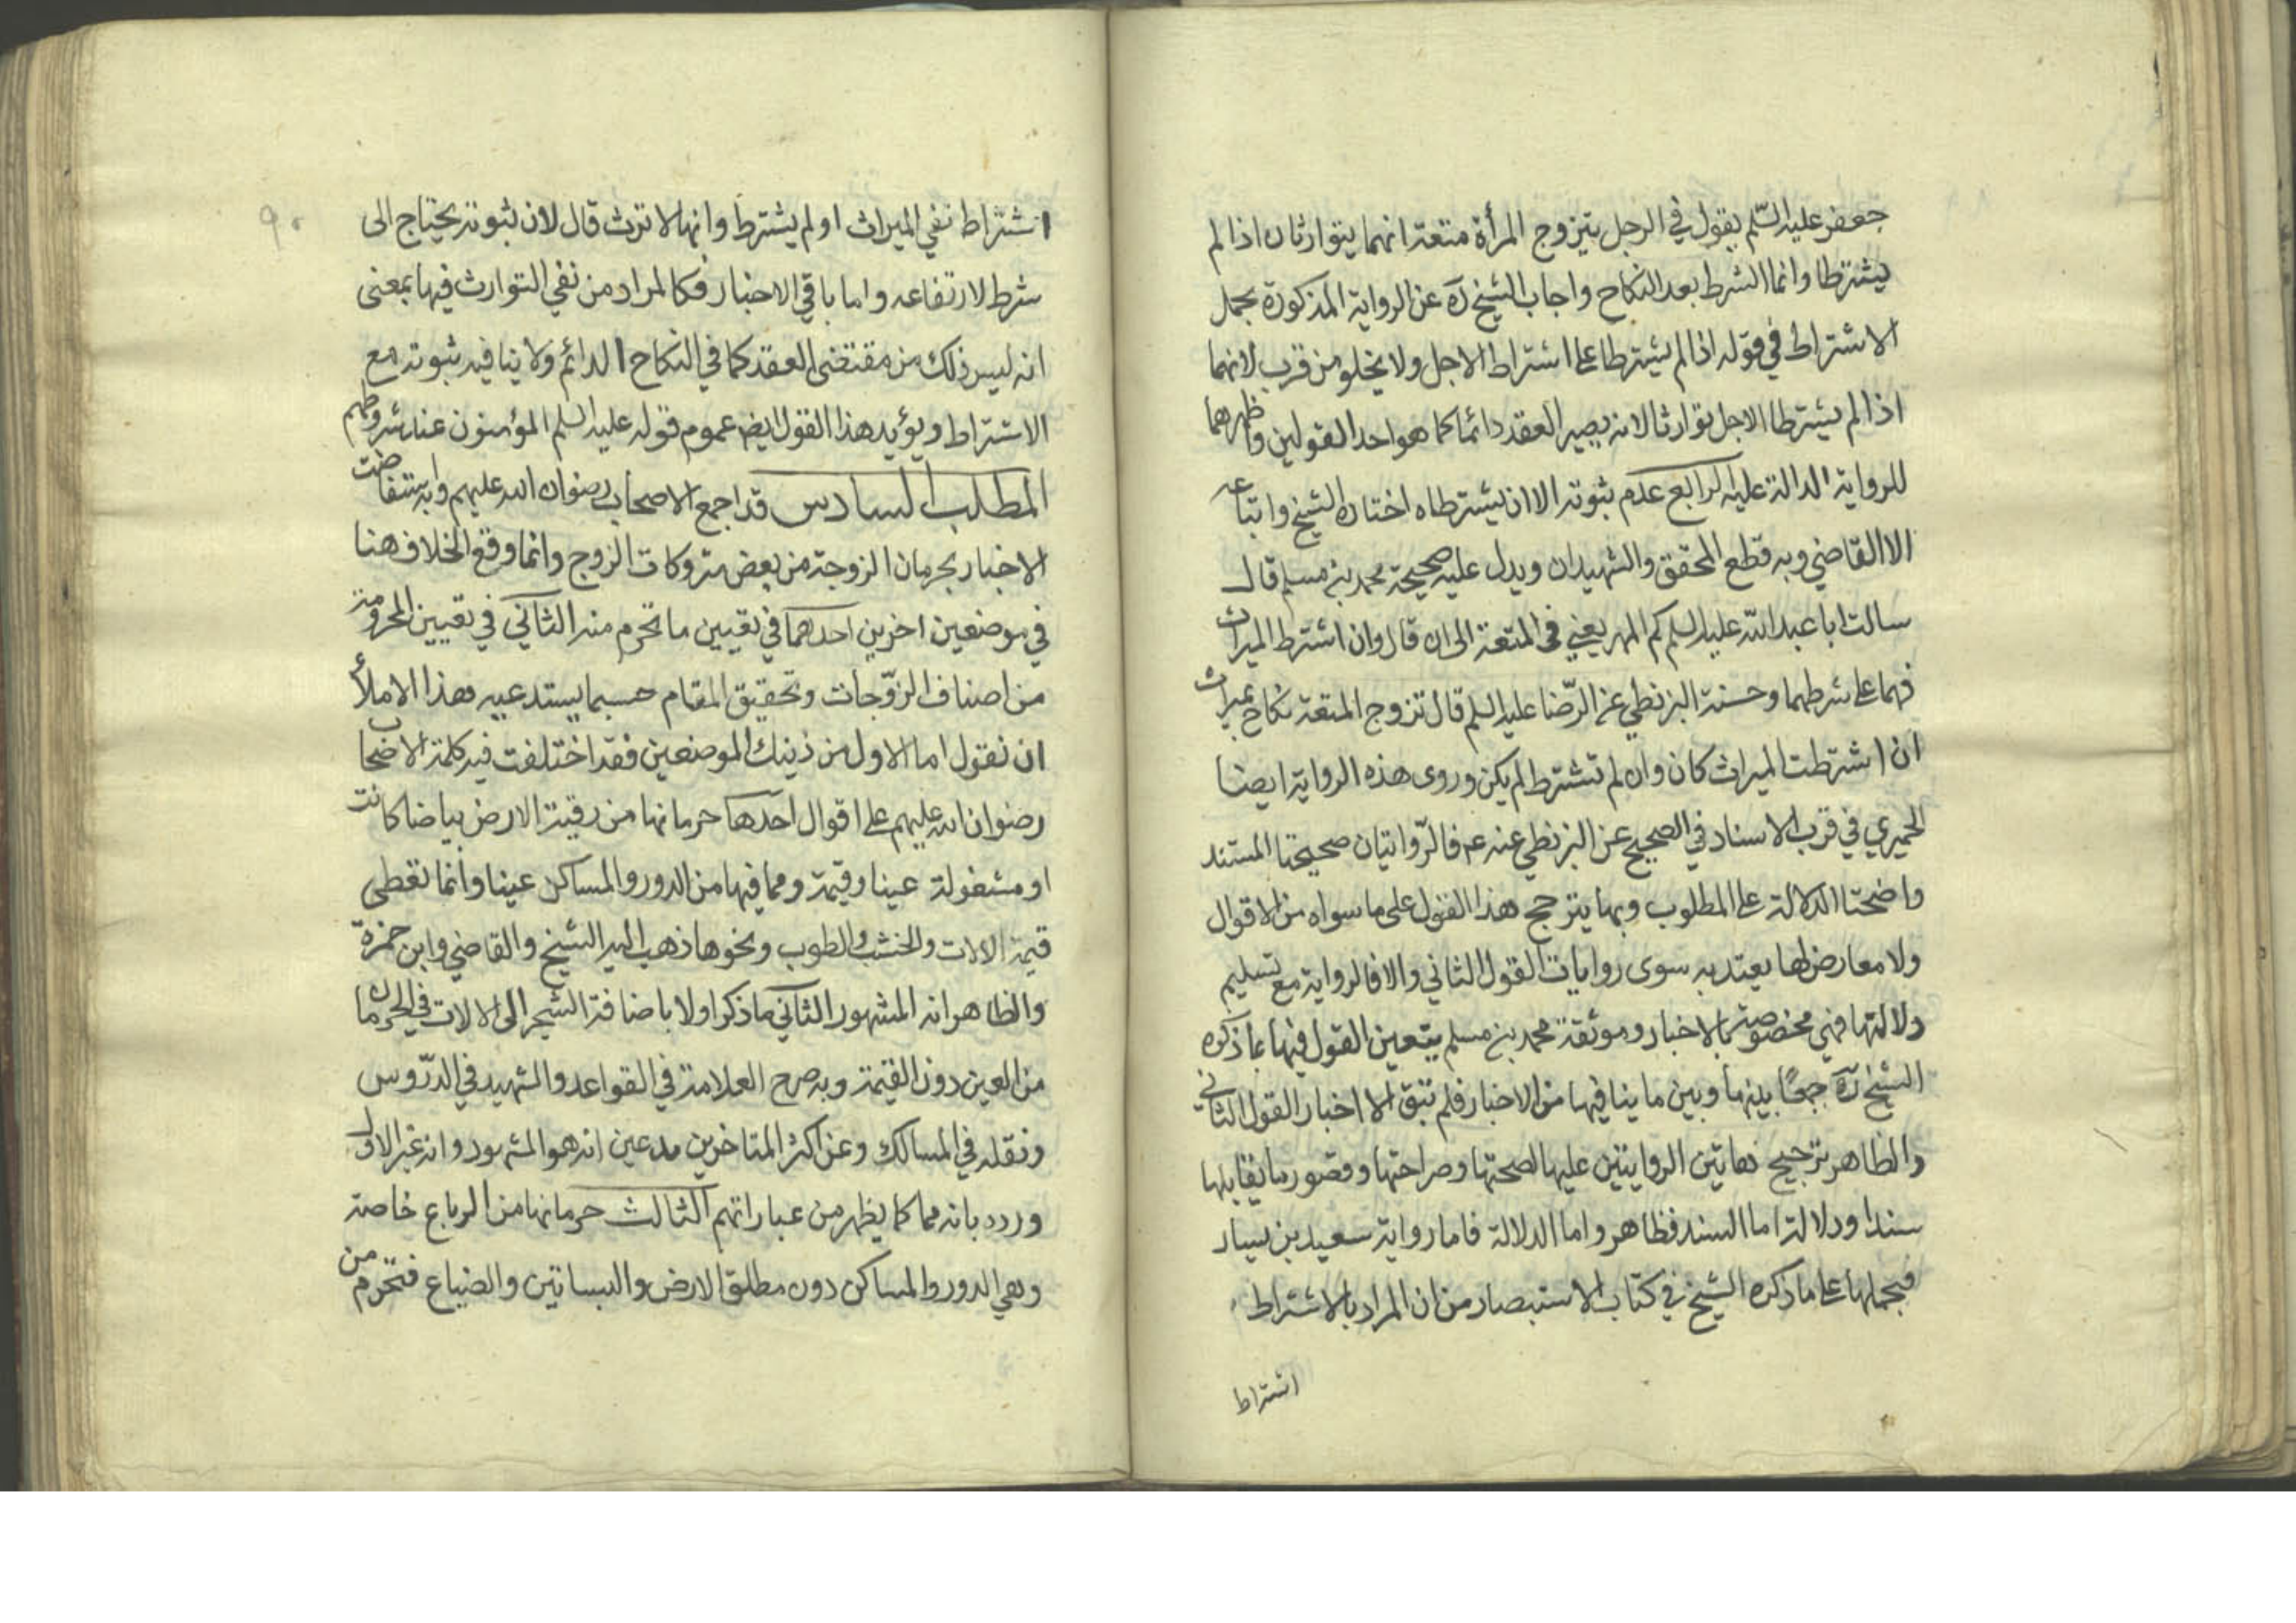 جعفر عليه السّلم يقول في الرجل يتزوج المرأة متعة انهما يتوارثان اذا لم
يشترطا وانما الشرط بعد النكاح واجاب الشيخ ره عن الرواية المذكورة بحمل
الاشتراط في قوله اذا لم يشترطا على اشتراط الاجل ولا يخلو من قرب لانهما
اذا لم يشترطا الاجل توارثا لانه يصير العقد دائما كما هو احد القولين واظهرهما
للرواية الدالة عليه الرابع عدم ثبوته الا ان يشترطاه اختاره الشيخ واتباعه
الا القاضي وبه قطع المحقق والشهيدان ويدل عليه صحيحة محمد بن مسلم قال
سالت ابا عبد الله عليه السلم كم المهر يعني في المتعة الى ان قال وان اشترط الميراث
فهما على شرطهما وحسنة البزنطي عن الرّضا عليه السلم قال تزوج المتعة نكاح بميراث
ان اشترطت الميراث كان وان لم تشترط لم يكن وروى هذه الرواية ايضا
الحميري في قرب الاسناد في الصحيح عن البزنطي عنه ع فالرّوايتان صحيحتا المستند
واضحتا الدلالة على المطلوب وبها يترجح هذا القول على ما سواه من الاقوال
ولا معارض لها يعتد به سوى روايات القول الثاني والا فالرواية مع تسليم
دلالتها فهي مخصوصة بالاخبار وموثقة محمد بن مسلم يتعين القول فيها بما ذكره
الشيخ ره جمعًا بينها وبين ما ينافيها من الاخبار فلم تبق الا اخبار القول الثاني
والظاهر ترجيح هاتين الروايتين عليها لصحتها وصراحتها وقصور ما يقابلها
سندا ودلالة اما السند فظاهر واما الدلالة فاما رواية سعيد بن يسار
فيحملها على ما ذكره الشيخ في كتاب الاستبصار من ان المراد بالاشتراط
اشتراط
اشتراط نفي الميراث او لم يشترط وانها لا ترث قال لان ثبوته يحتاج الى
شرط لارتفاعه واما باقي الاخبار فكالمراد من نفي التوارث فيها بمعنى
انه ليس ذلك من مقتضى العقد كما في النكاح الدائم ولا ينافيه ثبوته مع
الاشتراط ويؤيد هذا القول ايض عموم قوله عليه السلم المؤمنون عند شروطهم
المطلب السادس قد اجمع الاصحاب رضوان الله عليهم وبه استفاضت
الاخبار بحرمان الزوجة من بعض متروكات الزوج وانما وقع الخلاف هنا
في موضعين اخرين احدهما في تعيين ما تحرم منه الثاني في تعيين المحرومة
من اصناف الزوّجات وتحقيق المقام حسبما يستدعيه هذا الاملأ
ان نقول اما الاول من ذينك الموضعين فقد اختلفت فيه كلمة الاصحاب
رضوان الله عليهم على اقوال احدها حرمانها من رقبة الارض بياضا كانت
او مشغولة عينا وقيمة ومما فيها من الدور والمساكن عينا وانما تعطى
قيمة الالات والخشب والطوب ونحوها ذهب اليه الشيخ والقاضي وابن حمزة
والظاهر انه المشهور الثاني ما ذكر اولا باضافة الشجر الى الالات في الحرمان
من العين دون القيمة وبه صرح العلامة في القواعد والشهيد في الدرّوس
ونقله في المسالك وعن اكثر المتاخرين مدعين انه هو المشهور وانه غير الاول
وردد بانه مما كما يظهر من عباراتهم الثالث حرمانها من الرباع خاصة
وهي الدور والمساكن دون مطلق الارض والبساتين والضياع فتحرم من
٩٠